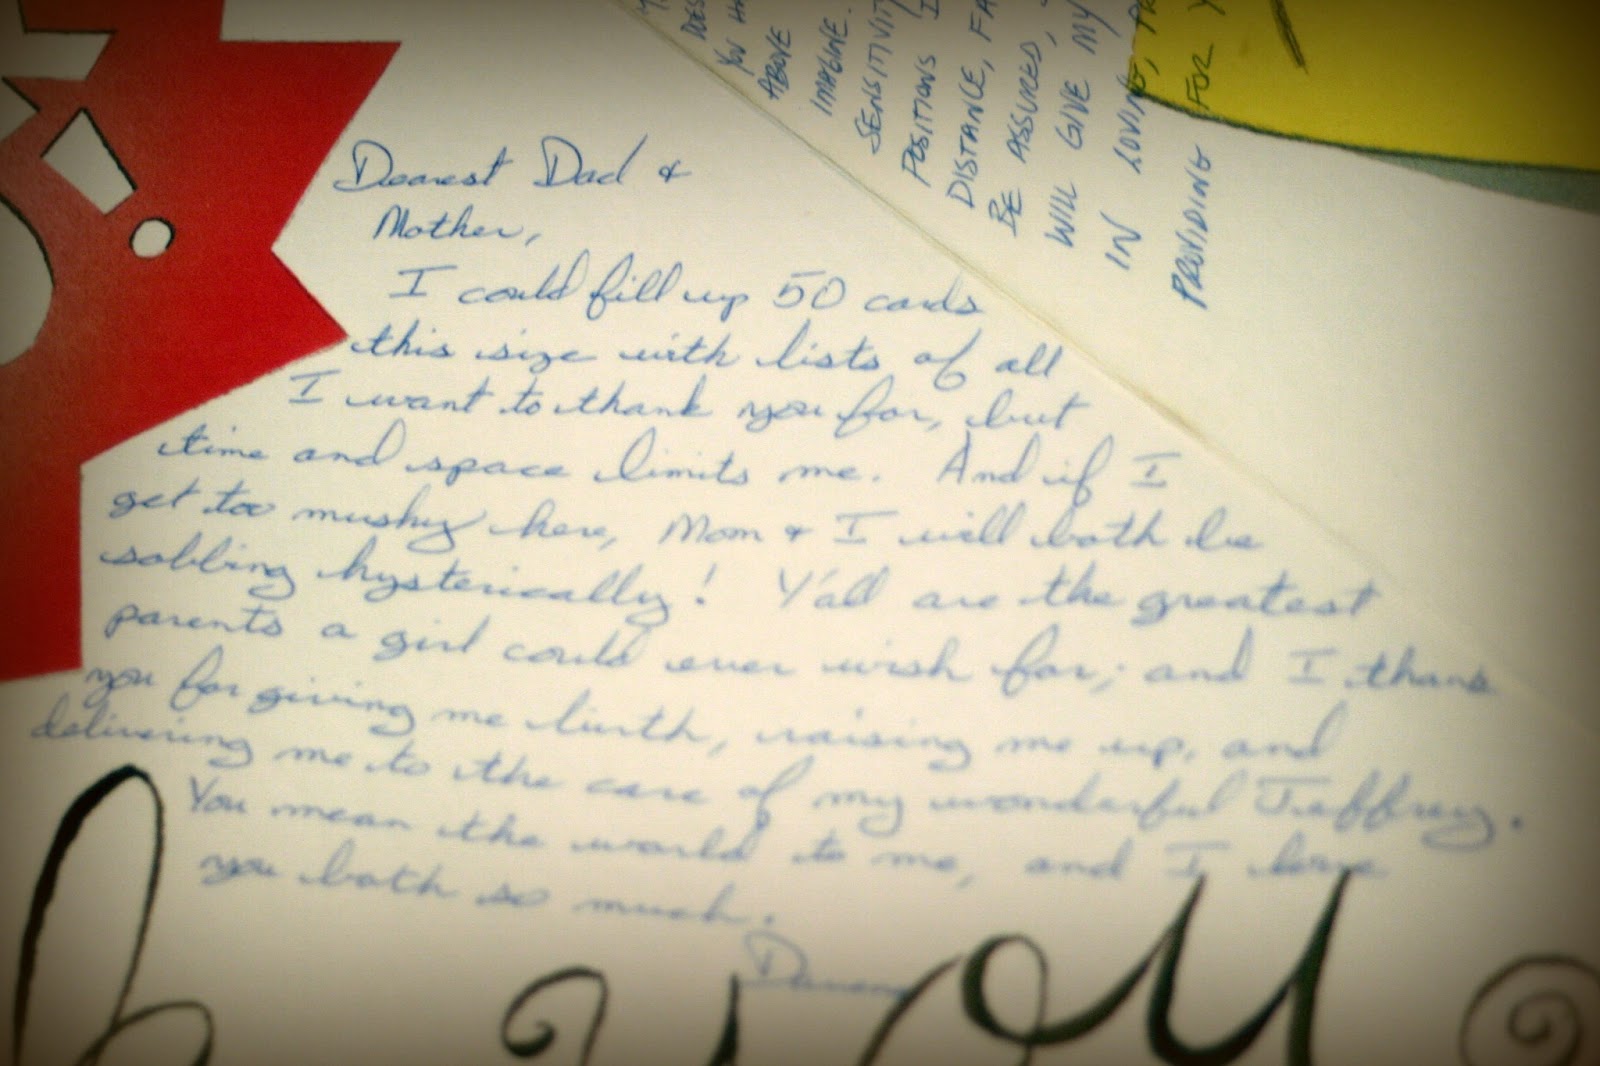 Dearest Dad &
Mother,
I could fill up 50 cards
this size with lists of all
I want to thank you for, but
time and space limits me. And if I
get too mushy here, Mom & I will both be
sobbing hysterically! Y'all are the greatest
parents a girl could ever wish for; and I thank
you for giving me birth, raising me up, and
delivering me to the care of my wonderful Jeffrey.
You mean the world to me, and I love
you both so much.
DOES
YOU
ABOVE
IMAGINE.
SENSITIVITY
POSITIONS I
DISTANCE,
BE ASSURED,
WILL GIVE MY
IN LOVING,
PROVIDING FOR
you